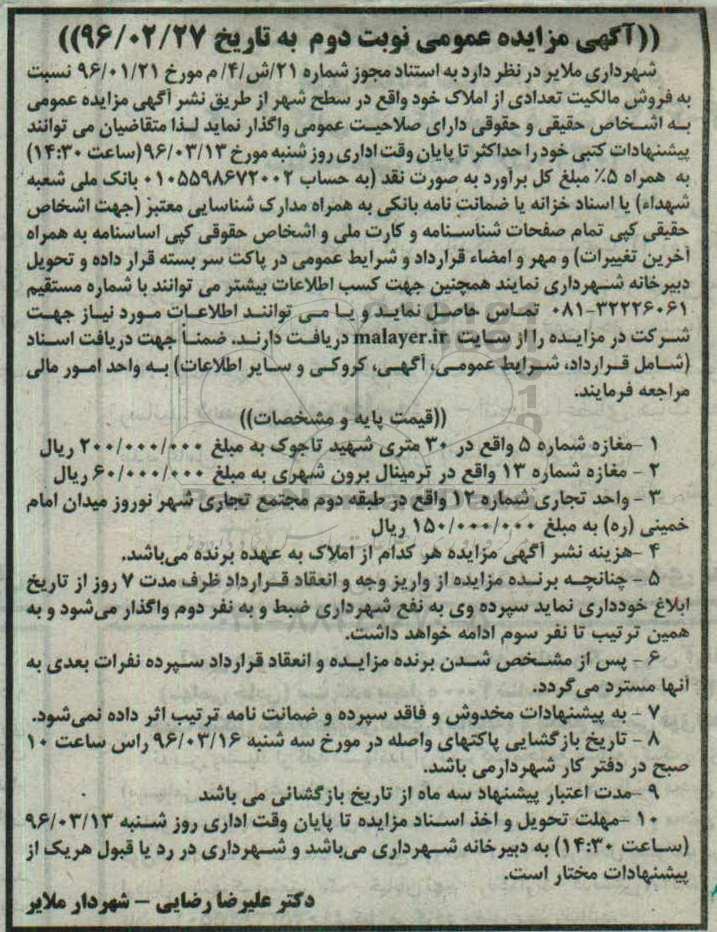 ((آگهی مزایده عمومی نوبت دوم به تاریخ ۹۶/۰۲/۲۷))
شهرداری ملایر در نظر دارد به استناد مجوز شماره ۲۱/ش/۴/م مورخ ۹۶/۰۱/۲۱ نسبت
به فروش مالکیت تعدادی از املاک خود واقع در سطح شهر از طریق نشر آگهی مزایده عمومی
به اشخاص حقیقی و حقوقی دارای صلاحیت عمومی واگذار نماید لذا متقاضیان می توانند
پیشنهادات کتبی خود را حداکثر تا پایان وقت اداری روز شنبه مورخ ۹۶/۰۳/۱۳ (ساعت ۱۴:۳۰)
به همراه ۵٪ مبلغ کل برآورد به صورت نقد (به حساب ۰۱۰۵۵۹۸۶۷۲۰۰۲ بانک ملی شعبه
شهداء) یا اسناد خزانه یا ضمانت نامه بانکی به همراه مدارک شناسایی معتبر (جهت اشخاص
حقیقی کپی تمام صفحات شناسنامه و کارت ملی و اشخاص حقوقی کپی اساسنامه به همراه
آخرین تغییرات) و مهر و امضاء قرارداد و شرایط عمومی در پاکت سر بسته قرار داده و تحویل
دبیرخانه شهرداری نمایند همچنین جهت کسب اطلاعات بیشتر می توانند با شماره مستقیم
۰۸۱-۳۲۲۲۶۰۶۱ تماس حاصل نماید و یا می توانند اطلاعات مورد نیاز جهت
شرکت در مزایده را از سایت malayer.ir دریافت دارند. ضمناً جهت دریافت اسناد
(شامل قرارداد، شرایط عمومی، آگهی، کروکی و سایر اطلاعات) به واحد امور مالی
مراجعه فرمایند.
((قیمت پایه و مشخصات))
۱ -مغازه شماره ۵ واقع در ۳۰ متری شهید تاجوک به مبلغ ۲۰۰/۰۰۰/۰۰۰ ریال
۲ - مغازه شماره ۱۳ واقع در ترمینال برون شهری به مبلغ ۶۰/۰۰۰/۰۰۰ ریال
۳ - واحد تجاری شماره ۱۲ واقع در طبقه دوم مجتمع تجاری شهر نوروز میدان امام
خمینی (ره) به مبلغ ۱۵۰/۰۰۰/۰۰۰ ریال
۴ -هزینه نشر آگهی مزایده هر کدام از املاک به عهده برنده می‌باشد.
۵ - چنانچه برنده مزایده از واریز وجه و انعقاد قرارداد ظرف مدت ۷ روز از تاریخ
ابلاغ خودداری نماید سپرده وی به نفع شهرداری ضبط و به نفر دوم واگذار می‌شود و به
همین ترتیب تا نفر سوم ادامه خواهد داشت.
۶ - پس از مشخص شدن برنده مزایده و انعقاد قرارداد سپرده نفرات بعدی به
آنها مسترد می‌گردد.
۷ - به پیشنهادات مخدوش و فاقد سپرده و ضمانت نامه ترتیب اثر داده نمی‌شود.
۸ - تاریخ بازگشایی پاکتهای واصله در مورخ سه شنبه ۹۶/۰۳/۱۶ راس ساعت ۱۰
صبح در دفتر کار شهردارمی باشد.
۹ -مدت اعتبار پیشنهاد سه ماه از تاریخ بازگشائی می باشد
۱۰ -مهلت تحویل و اخذ اسناد مزایده تا پایان وقت اداری روز شنبه ۹۶/۰۳/۱۳
(ساعت ۱۴:۳۰) به دبیرخانه شهرداری می‌باشد و شهرداری در رد یا قبول هریک از
پیشنهادات مختار است.
دکتر علیرضا رضایی - شهردار ملایر